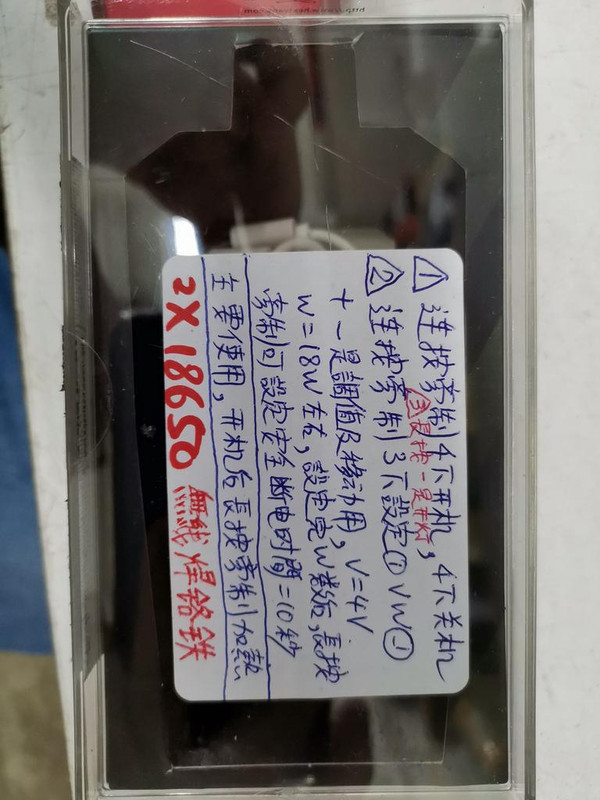 △1 连按掣制4下开机，4下关机
△3 長按一是开灯
△2 连按掣制3下設定⊕VW⊖
+ - 是調值及移动用，V=4V
W=18W左右，設定完W数后，長按
掣制可設定安全断电时間=10秒
主要使用，开机后長按掣制加熱
2X18650 無线焊鉻鉄